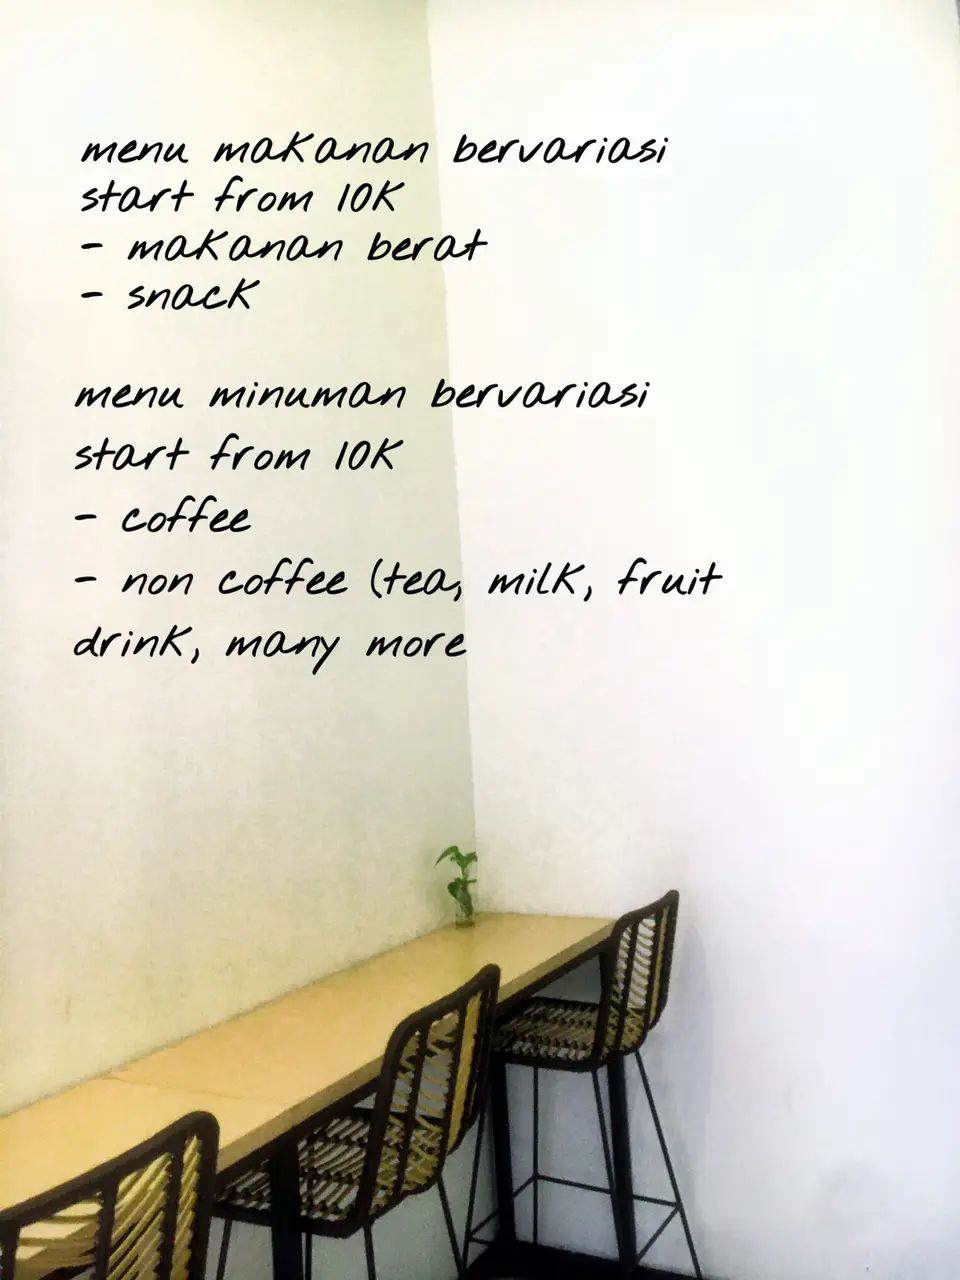 menu makanan bervariasi
start from 10K
- makanan berat
- snack
menu minuman bervariasi
start from 10K
- coffee
- non coffee (tea, milk, fruit
drink, many more